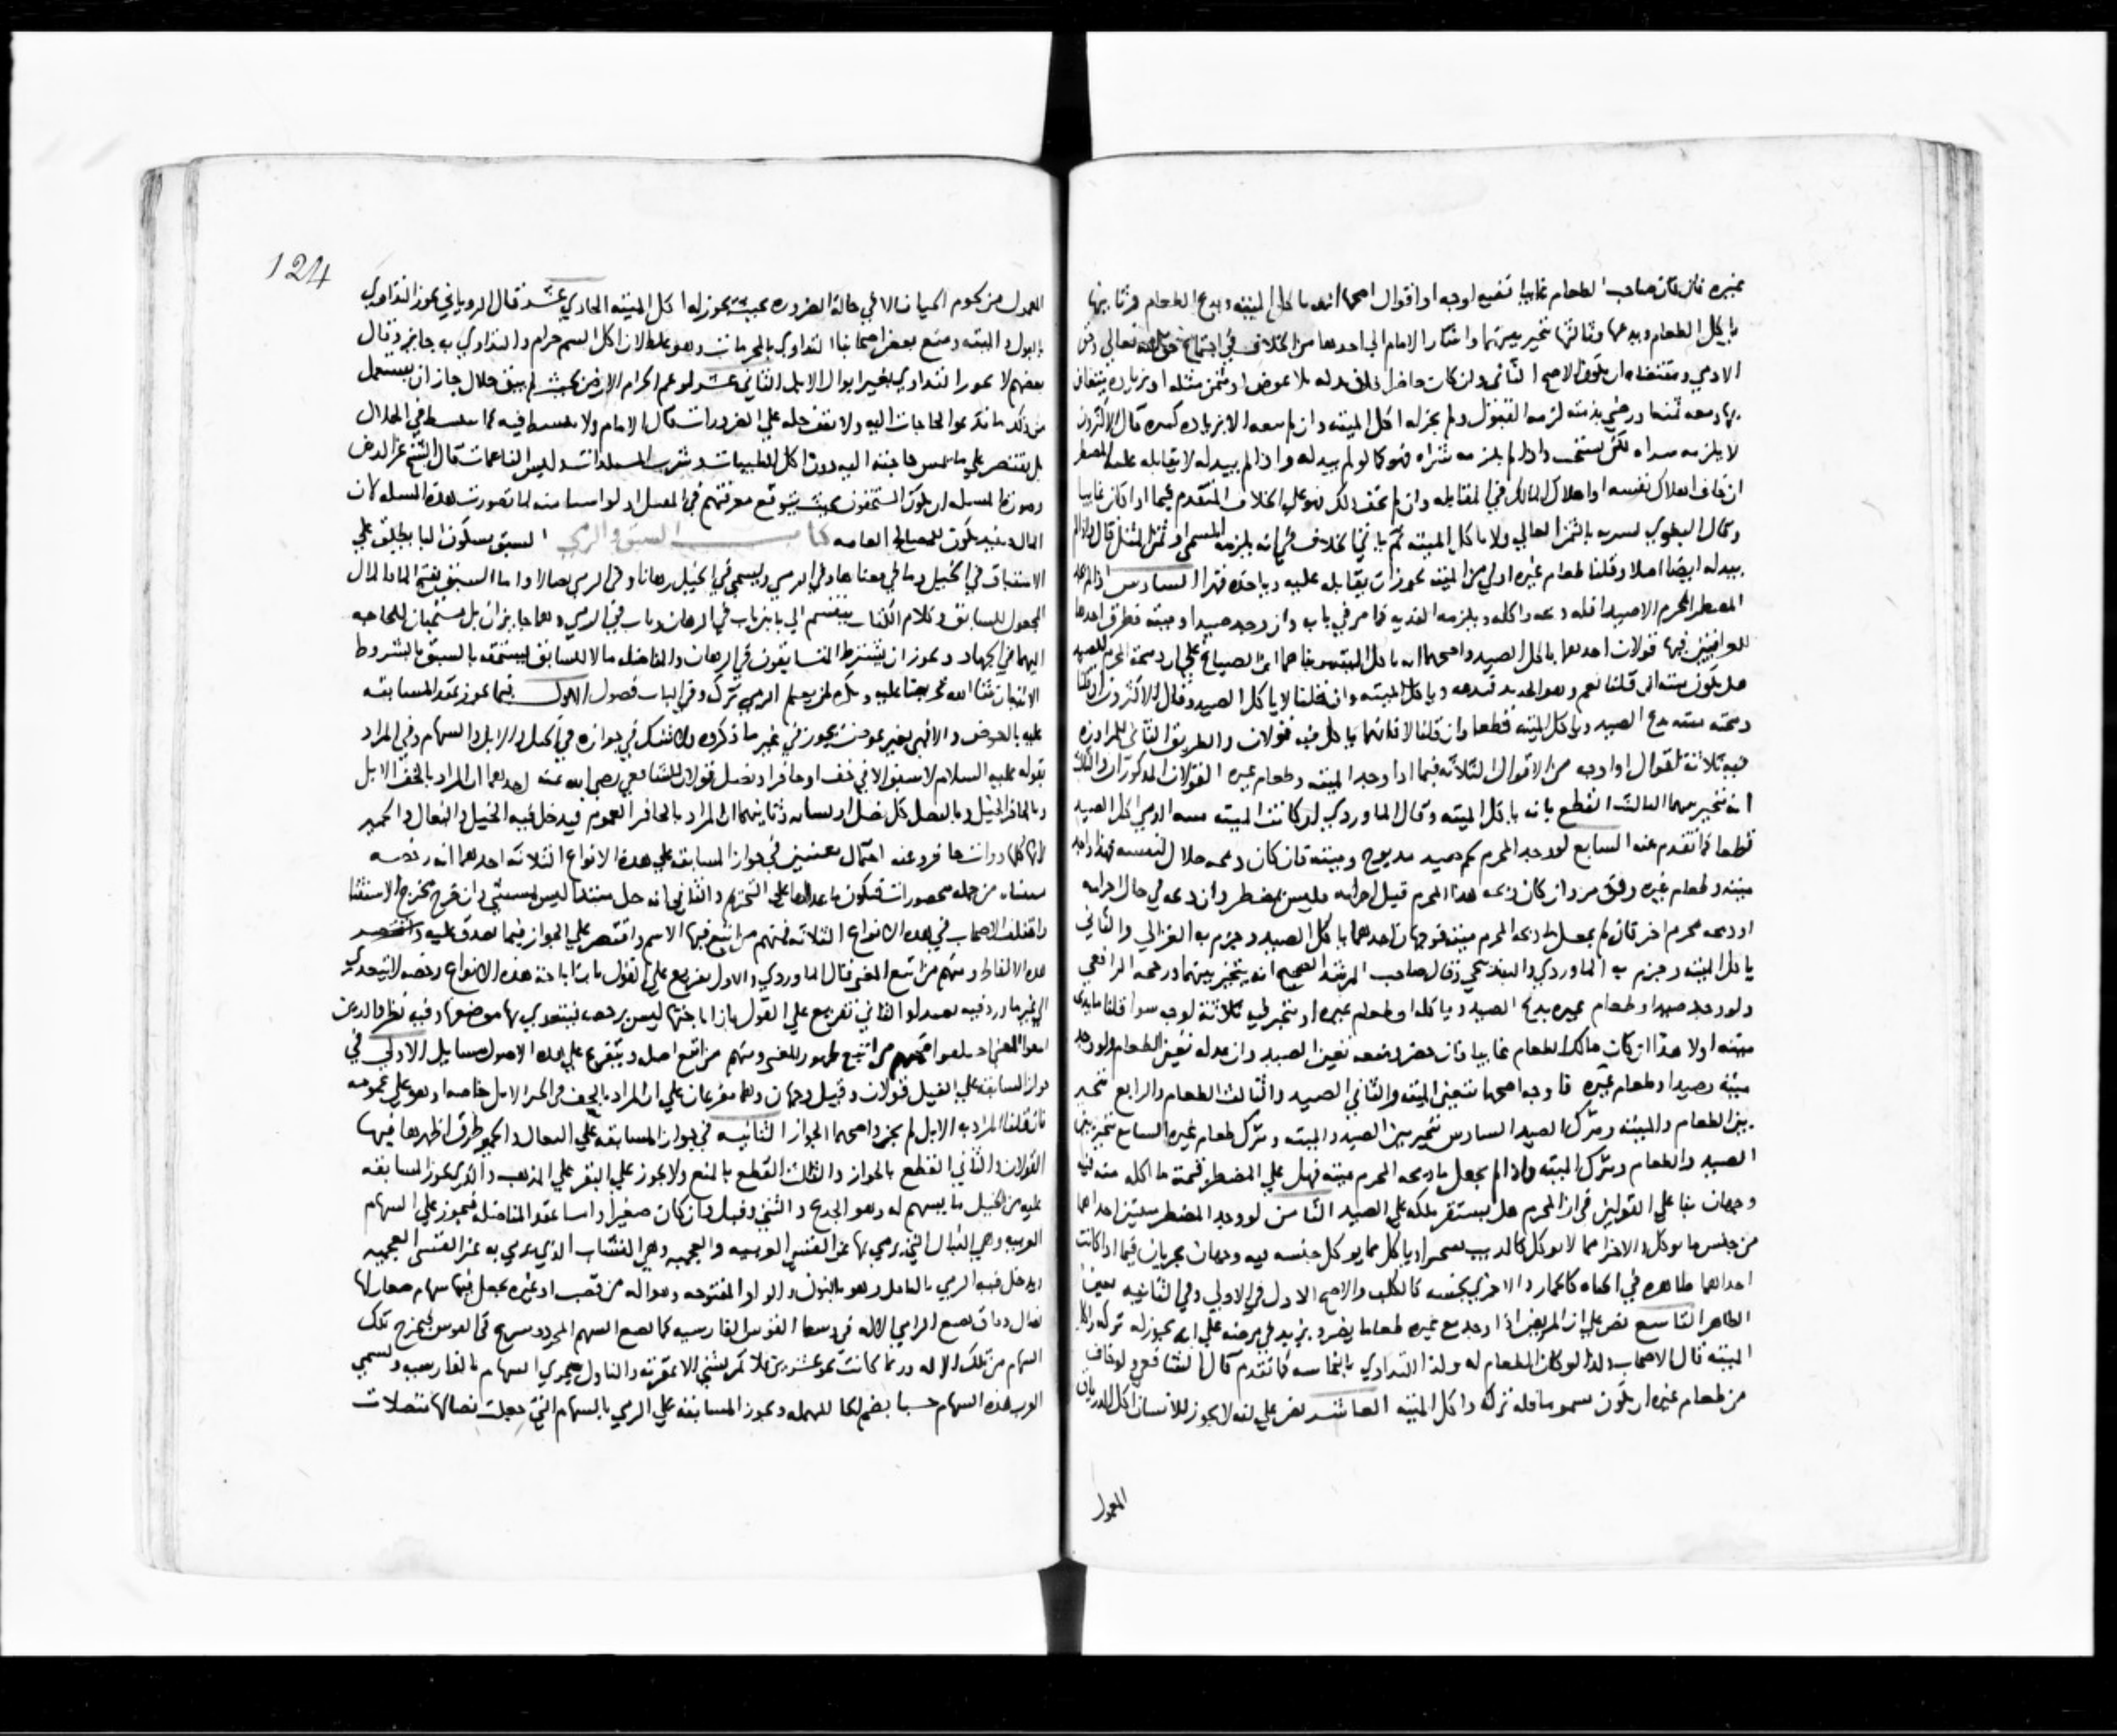 غيره فان كان صاحب الطعام غايبا اوجه او اقوال اصحها انه ياكل الميته ويدع الطعام وثانيها
ياكل الطعام ويدعها وثالثها يتخير بينهما واشار الامام الي اخذها من الخلاف في اجتماع حق الله تعالي وحق
الادمي ومقتضاه ان يكون الاصح الثاني وان كان حاضرا بذله بلا عوض او بثمن مثله او بزياده يتغابن
بها ومعه ثمنها ورضي بذمته لزمه القبول ولم يجز له اكل الميته وان لم يبعه الا بزياده كثيره قال الاكثرون
لا يلزمه شراه لكن يستحب واذا لم يلزمه شراه فهو كما لو لم يبذله واذا لم يبذله لا يقاتله عليه المضطر
ان خاف الهلاك نفسه او اهلاك المالك في المقاتله وان لم يخف ذلك فهو علي الخلاف المتقدم فيما اذا كان غايبا
وقال البغوي يشتريه بالثمن الغالي ولا ياكل الميته ثم ياتي الخلاف في انه يلزمه المسمي او ثمن المثل قال واذا لم
يبذله ايضا اصلا وقلنا طعام غيره اولي من الميته يجوز ان يقاتله عليه وياخذه قهرا السادس اذا لم يجد
المضطر المحرم الا صيدا فله ذبحه واكله ويلزمه الفديه كما مر في بابه وان وجد صيدا وميته فطرق احدها
للعراقيين فيها قولان احدهما ياكل الصيد واصحهما انه ياكل الميته ان ذبيحة المحرم للصيد
هل يكون ميته ان قلنا نعم وهو الجديد فيدعه وياكل الميته وان قلنا لا ياكل الصيد وقال الاكثرون ان قلنا
ذبيحته ميته يدع الصيد وياكل الميته قطعا وان قلنا لا فايهما ياكل فيه قولان والطريق الثاني للمراوزه
فيه ثلاثة اقوال او اوجه من الاقوال الثلاثه فيما اذا وجد الميته وطعام غيره القولان المذكوران والثالث
انه يتخير بينهما الثالث القطع بانه ياكل الميته وقال الماوردي لو كانت الميته اكل الصيد
قطعا كما تقدم عنه السابع لو وجد المحرم لحم صيد مذبوح وميته فان كان ذبحه حلال لنفسه فهذا واجد
ميته وطعام غيره وان كان ذبحه هذا المحرم قبل احرامه فليس بمضطر وان ذبحه في حال احرامه
او ذبحه محرم اخر فان لم يجعل ما ذبحه المحرم ميته فوجهان احدهما ياكل الصيد وجزم به الغزالي والثاني
ياكل الميته وجزم به الماوردي والبندنيجي وقال صاحب المرشد الصحيح انه يتخير بينهما ورجحه الرافعي
ولو وجد صيدا وطعام غيره يدع الصيد وياكله او طعام غيره او يتخير فيه ثلاثة اوجه سوا قلنا ما يذبحه
ميته او لا هذا ان كان مالك الطعام غايبا فان حضر ومنعه تعين الصيد وان بذله تعين الطعام ولو وجد
ميته وصيدا وطعام غيره فاوجه اصحها تتعين الميته والثاني الصيد والثالث الطعام والرابع يتخير
بين الطعام والميته ويترك الصيد السادس يتخير بين الصيد والميته ويترك طعام غيره السابع يتخير بين
الصيد والطعام ويترك الميته واذا لم يجعل ما ذبحه المحرم ميته فهل علي المضطر قيمة ما اكله منه فيه
وجهان بنا علي القولين في ان المحرم هل يستقر ملكه علي الصيد الثامن لو وجد المضطر ميتتين احداهما
من جنس ما يوكل والاخرا مما لا يوكل كالذيب ياكل مما يوكل جنسه فيه وجهان يجريان فيما اذا كانت
احداهما طاهره في الحياه كالحمار والاخري نجسه كالكلب والاصح الاول في الاولي وفي الثانيه يتعين
الطاهر التاسع نص علي ان المريض اذا وجد مع غيره طعاما يضره ويزيد في مرضه علي انه يجوز له تركه واكل
الميته قال الاصحاب وكذا لو كان الطعام له ولذا التداوي بالنجاسه كما تقدم قال الشافعي ولو خاف
من طعام غيره ان يكون مسموما فله تركه واكل الميته العاشر نص علي انه لا يجوز للانسان اكل الدرياق
المعمول
124
المعمول من لحوم الحيات الا في حالة الضروره بحيث يجوز له اكل الميته الحادي عشر قال الروياني يجوز التداوي
بالبول والميته ومنع بعض اصحابنا التداوي بالمحرمات وهو غلط لان اكل السم حرام والتداوي به جايز وقال
بعضهم لا يجوز التداوي بغير ابوال الابل الثاني عشر لو عم الحرام الارض بحيث لم يبق حلال جاز ان يستعمل
من ذلك ما تدعو الحاجات اليه ولا يقف حله علي الضرورات قال الامام ولا يبسط فيه كما يبسط في الحلال
بل يقتصر علي ما يمس حاجته اليه دون اكل الطيبات وشرب المستلذات ولبس الناعمات قال الشيخ عز الدين
وصورة المسله ان يكون المستحقون بحيث يتوقع معرفتهم في المستقبل ولو ايسنا منه لما تصورت هذه المسله لان
المال حينيذ يكون للمصالح العامه كتاب السبق والرمي السبق بسكون البا يطلق علي
الاستباق في الخيل وما في معناها وفي الرمي ويسمي في الخيل رهانا وفي الرمي نضالا واما السبق بفتح البا فالمال
المجعول للسابق وكلام الكتاب ينقسم الي بابين باب في الرهان وباب في الرمي وهما جايزان بل مستحبان للحاجه
اليهما في الجهاد ويجوز ان يشترط المتسابقون في الرهان والمناضله مالا للسابق ليستحقه بالسبق بالشروط
الاتيان ان شا الله تحريضا عليه ويكره لمن يعلم الرمي تركه وفي الباب فصول الاول فيما يجوز عقد المسابقه
عليه بالعوض والافهي بغير عوض يجوز في غير ما ذكروه ولا شك في جوازه في الخيل والابل والسهام وفي المراد
بقوله عليه السلام لا سبق الا في خف او حافر او نصل قولان للشافعي رضي الله عنه احدهما ان المراد بالخف الابل
وبالحافر الخيل وبالنصل كل نصل وثانيهما ان المراد بالحافر العموم فيدخل فيه الخيل والبغال والحمير
لانها كلها ذوات حافر وعنه احتمال معنيين في جواز المسابقه علي هذه الانواع الثلاثه احدهما انه رخصه
مستثناه من جمله محصورات فيكون ما عداها علي التحريم والثاني انه حل مبتدا ليس بمستثني وان خرج مخرج الاستثنا
واختلف الاصحاب في هذه الانواع الثلاثه فمنهم من اتبع فيها الاسم واقتصر علي الجواز فيما تصدق عليه
هذه الالفاظ ومنهم من اتبع المعني قال الماوردي والاول تفريع علي القول بان اباحة هذه الانواع رخصه لا يتعدي
الي غير ما ورد فيه نص والثاني تفريع علي القول بان اباحتها ليس برخصه فيتعدي بها موضعها وفيه نظر فالذين
اتبعوا المعني اختلفوا فمنهم من اتبع ظهور المعني ومنهم من اتبع اصله ويتفرع علي هذه الاصول مسايل الاولي في
جواز المسابقه علي الفيل قولان وقيل وجهان وهما مفرعان علي ان المراد بالخف في الخبر الابل خاصه او هو علي عمومه
فان قلنا المراد به الابل لم يجز واصحهما الجواز الثانيه في جواز المسابقه علي البغال والحمير طرق اظهرها فيها
القولان والثاني القطع بالجواز والثالث القطع بالمنع ولا يجوز علي البقر علي المذهب والذي يجوز المسابقه
عليه من الخيل ما يسهم له وهو الجذع والثني وقيل وان كان صغيرا واما عقد المناضله فيجوز علي السهام
العربيه وهي النبال التي يرمي بها عن القسي العربيه والعجميه وهي النشاب الذي يرمي به عن القسي العجميه
ويدخل فيه الرمي بالناوك وهو بالنون والواو المفتوحه وهو اله من قصب او غيره يجعل فيها سهام صغار لها
نصال دقاق يضع الرامي الاله في وسط القوس الفارسيه كما يضع السهم المجرد ويسرع في القوس فيخرج تلك
السهام من تلك الاله وربما كانت نحو عشرين فلا تمر بشي الا عقرته والناوك مجري السهام بالفارسيه وتسمي
العرب هذه السهام حسبا بضم الحا المهمله ويجوز المسابقه علي الرمي بالسهام التي جعلت نصالها متصلات